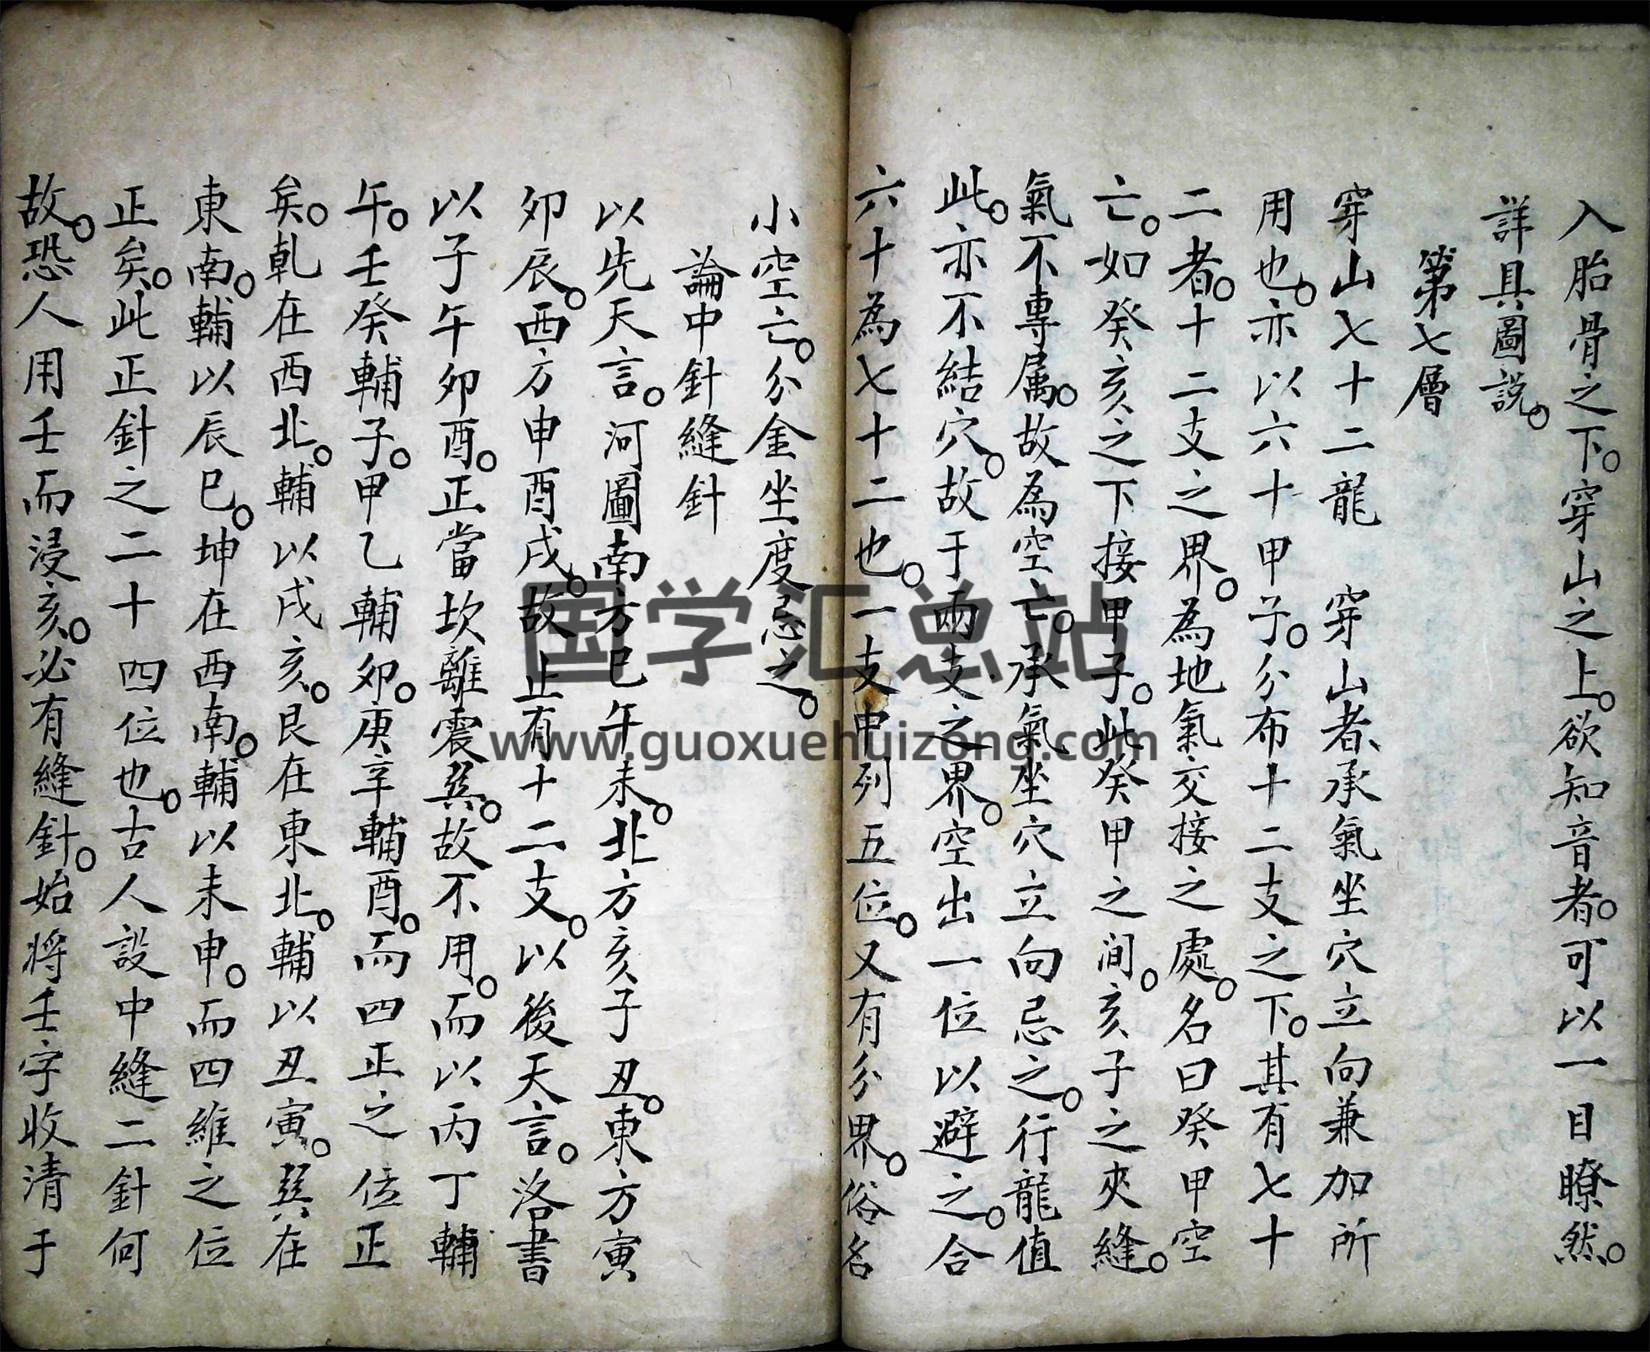 入胎骨之下。穿山之上。欲知音者。可以一目瞭然。
詳具圖説。
第七層
穿山七十二龍　穿山者、承氣坐穴立向兼加所
用也。亦以六十甲子。分布十二支之下。其有七十
二者。十二支之界。為地氣交接之處。名曰癸甲空
亡。如癸亥之下接甲子。此癸甲之间。亥子之夾縫。
氣不專属。故為空亡。承氣坐穴立向忌之。行龍值
此。亦不結穴。故于兩支之界。空出一位以避之。合
六十為七十二也。一支中列五位。又有分界。俗名
小空亡。分金坐度忌之。
論中針縫針
以先天言。河圖南方巳午未。北方亥子丑。東方寅
卯辰。西方申酉戌。故止有十二支。以後天言。洛書
以子午卯酉。正當坎離震兊。故不用。而以丙丁輔
午。壬癸輔子。甲乙輔卯。庚辛輔酉。而四正之位正
矣。乹在西北。輔以戌亥。艮在東北。輔以丑寅。巽在
東南。輔以辰巳。坤在西南。輔以未申。而四維之位
正矣。此正針之二十四位也。古人設中縫二針何
故。恐人用壬而浸亥。必有縫針。始将壬字收清于
国学汇总站
www.guoxuehuizong.com